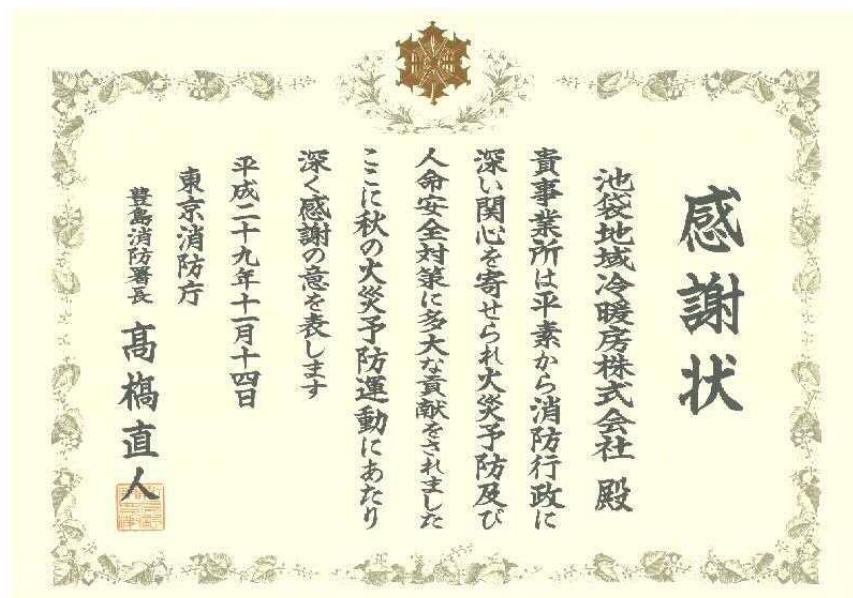 感謝状
池袋地域冷暖房株式会社 殿
貴事業所は平素から消防行政に
深い関心を寄せられ火災予防及び
人命安全対策に多大な貢献をされました
ここに秋の火災予防運動にあたり
深く感謝の意を表します
平成二十九年十一月十四日
東京消防庁
豊島消防署長 髙橋直人